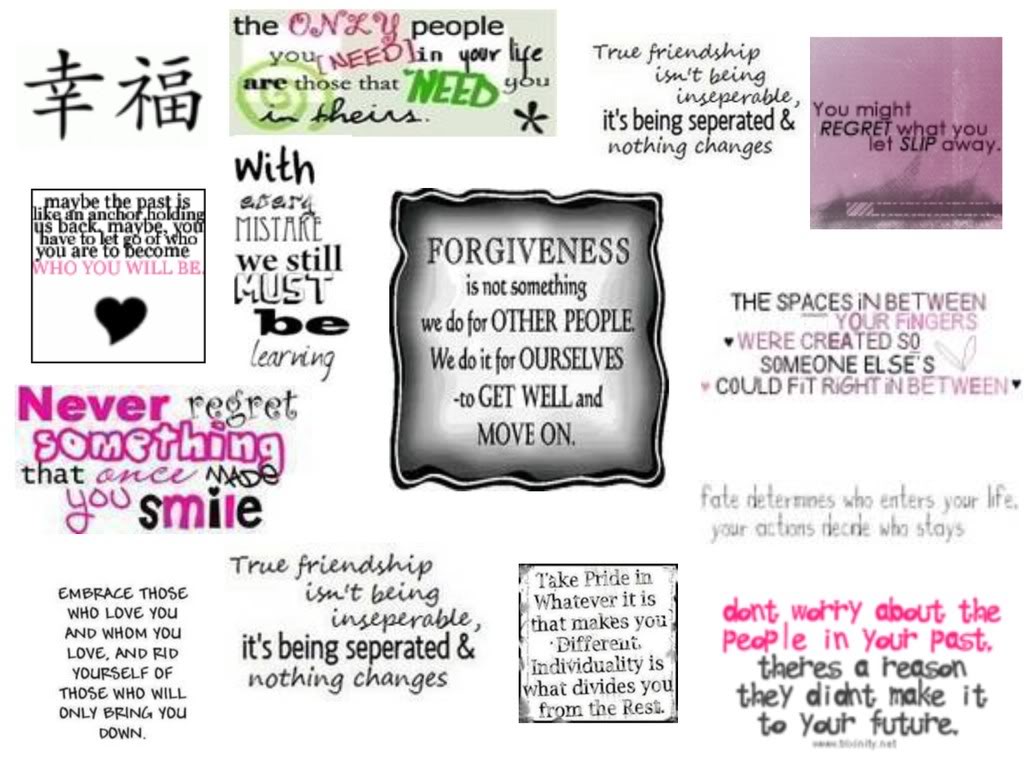 幸福
the ONLY people
you [NEED] in your life
are those that NEED you
in theirs. *
True friendship
isn't being
inseperable,
it's being seperated &
nothing changes
You might
REGRET what you
let SLIP away.
maybe the past is
like an anchor holding
us back. maybe, you
have to let go of who
you are to become
WHO YOU WILL BE.
With
every
MISTAKE
we still
MUST
be
learning
FORGIVENESS
is not something
we do for OTHER PEOPLE.
We do it for OURSELVES
-to GET WELL and
MOVE ON.
THE SPACES iN BETWEEN
YOUR FiNGERS
WERE CREATED SO
SOMEONE ELSE'S
COULD FiT RiGHT iN BETWEEN
Never regret
something
that once MADE
you smile
fate determines who enters your life,
your actions decide who stays
EMBRACE THOSE
WHO LOVE YOU
AND WHOM YOU
LOVE, AND RID
YOURSELF OF
THOSE WHO WILL
ONLY BRING YOU
DOWN.
True friendship
isn't being
inseperable,
it's being seperated &
nothing changes
Take Pride in
Whatever it is
that makes you
Different.
Individuality is
what divides you
from the Rest.
dont worry about the
people in your past,
theres a reason
they didnt make it
to your future.